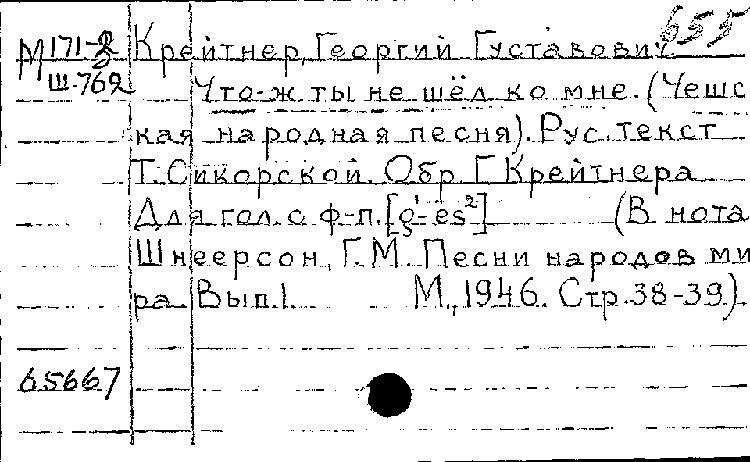 655
М 171-8 Крейтнер, Георгий Густавович
Ш-762 Что-ж ты не шёл ко мне. (Чешс
кая народная песня). Рус. текст
Т. Сикорской. Обр. Г. Крейтнера
Для гол. с ф-п. [g¹-es²] (В нота
Шнеерсон, Г. М. Песни народов ми
ра. Вып. 1. М., 1946. Стр. 38-39)
65667